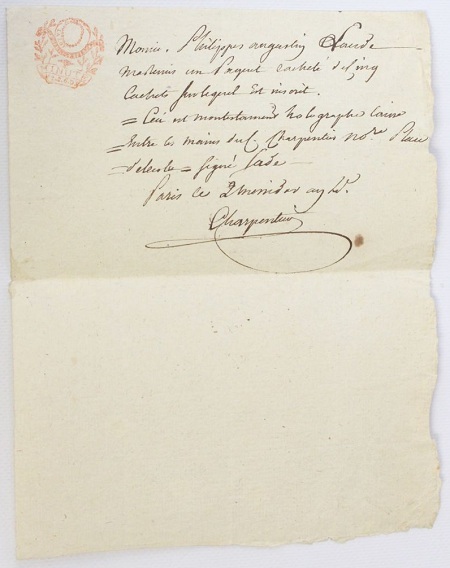 Monsr. Philippes augustin Claude
ma remis un Paquet Cacheté de Cinq
Cachets sur lequel Est inscrit.
= Ceci est mon testament holographe laissé
= Entre les mains du C. Charpentier nore. Place
= de lecole = signé Sade —
Paris le 2 messidor an
Charpentier